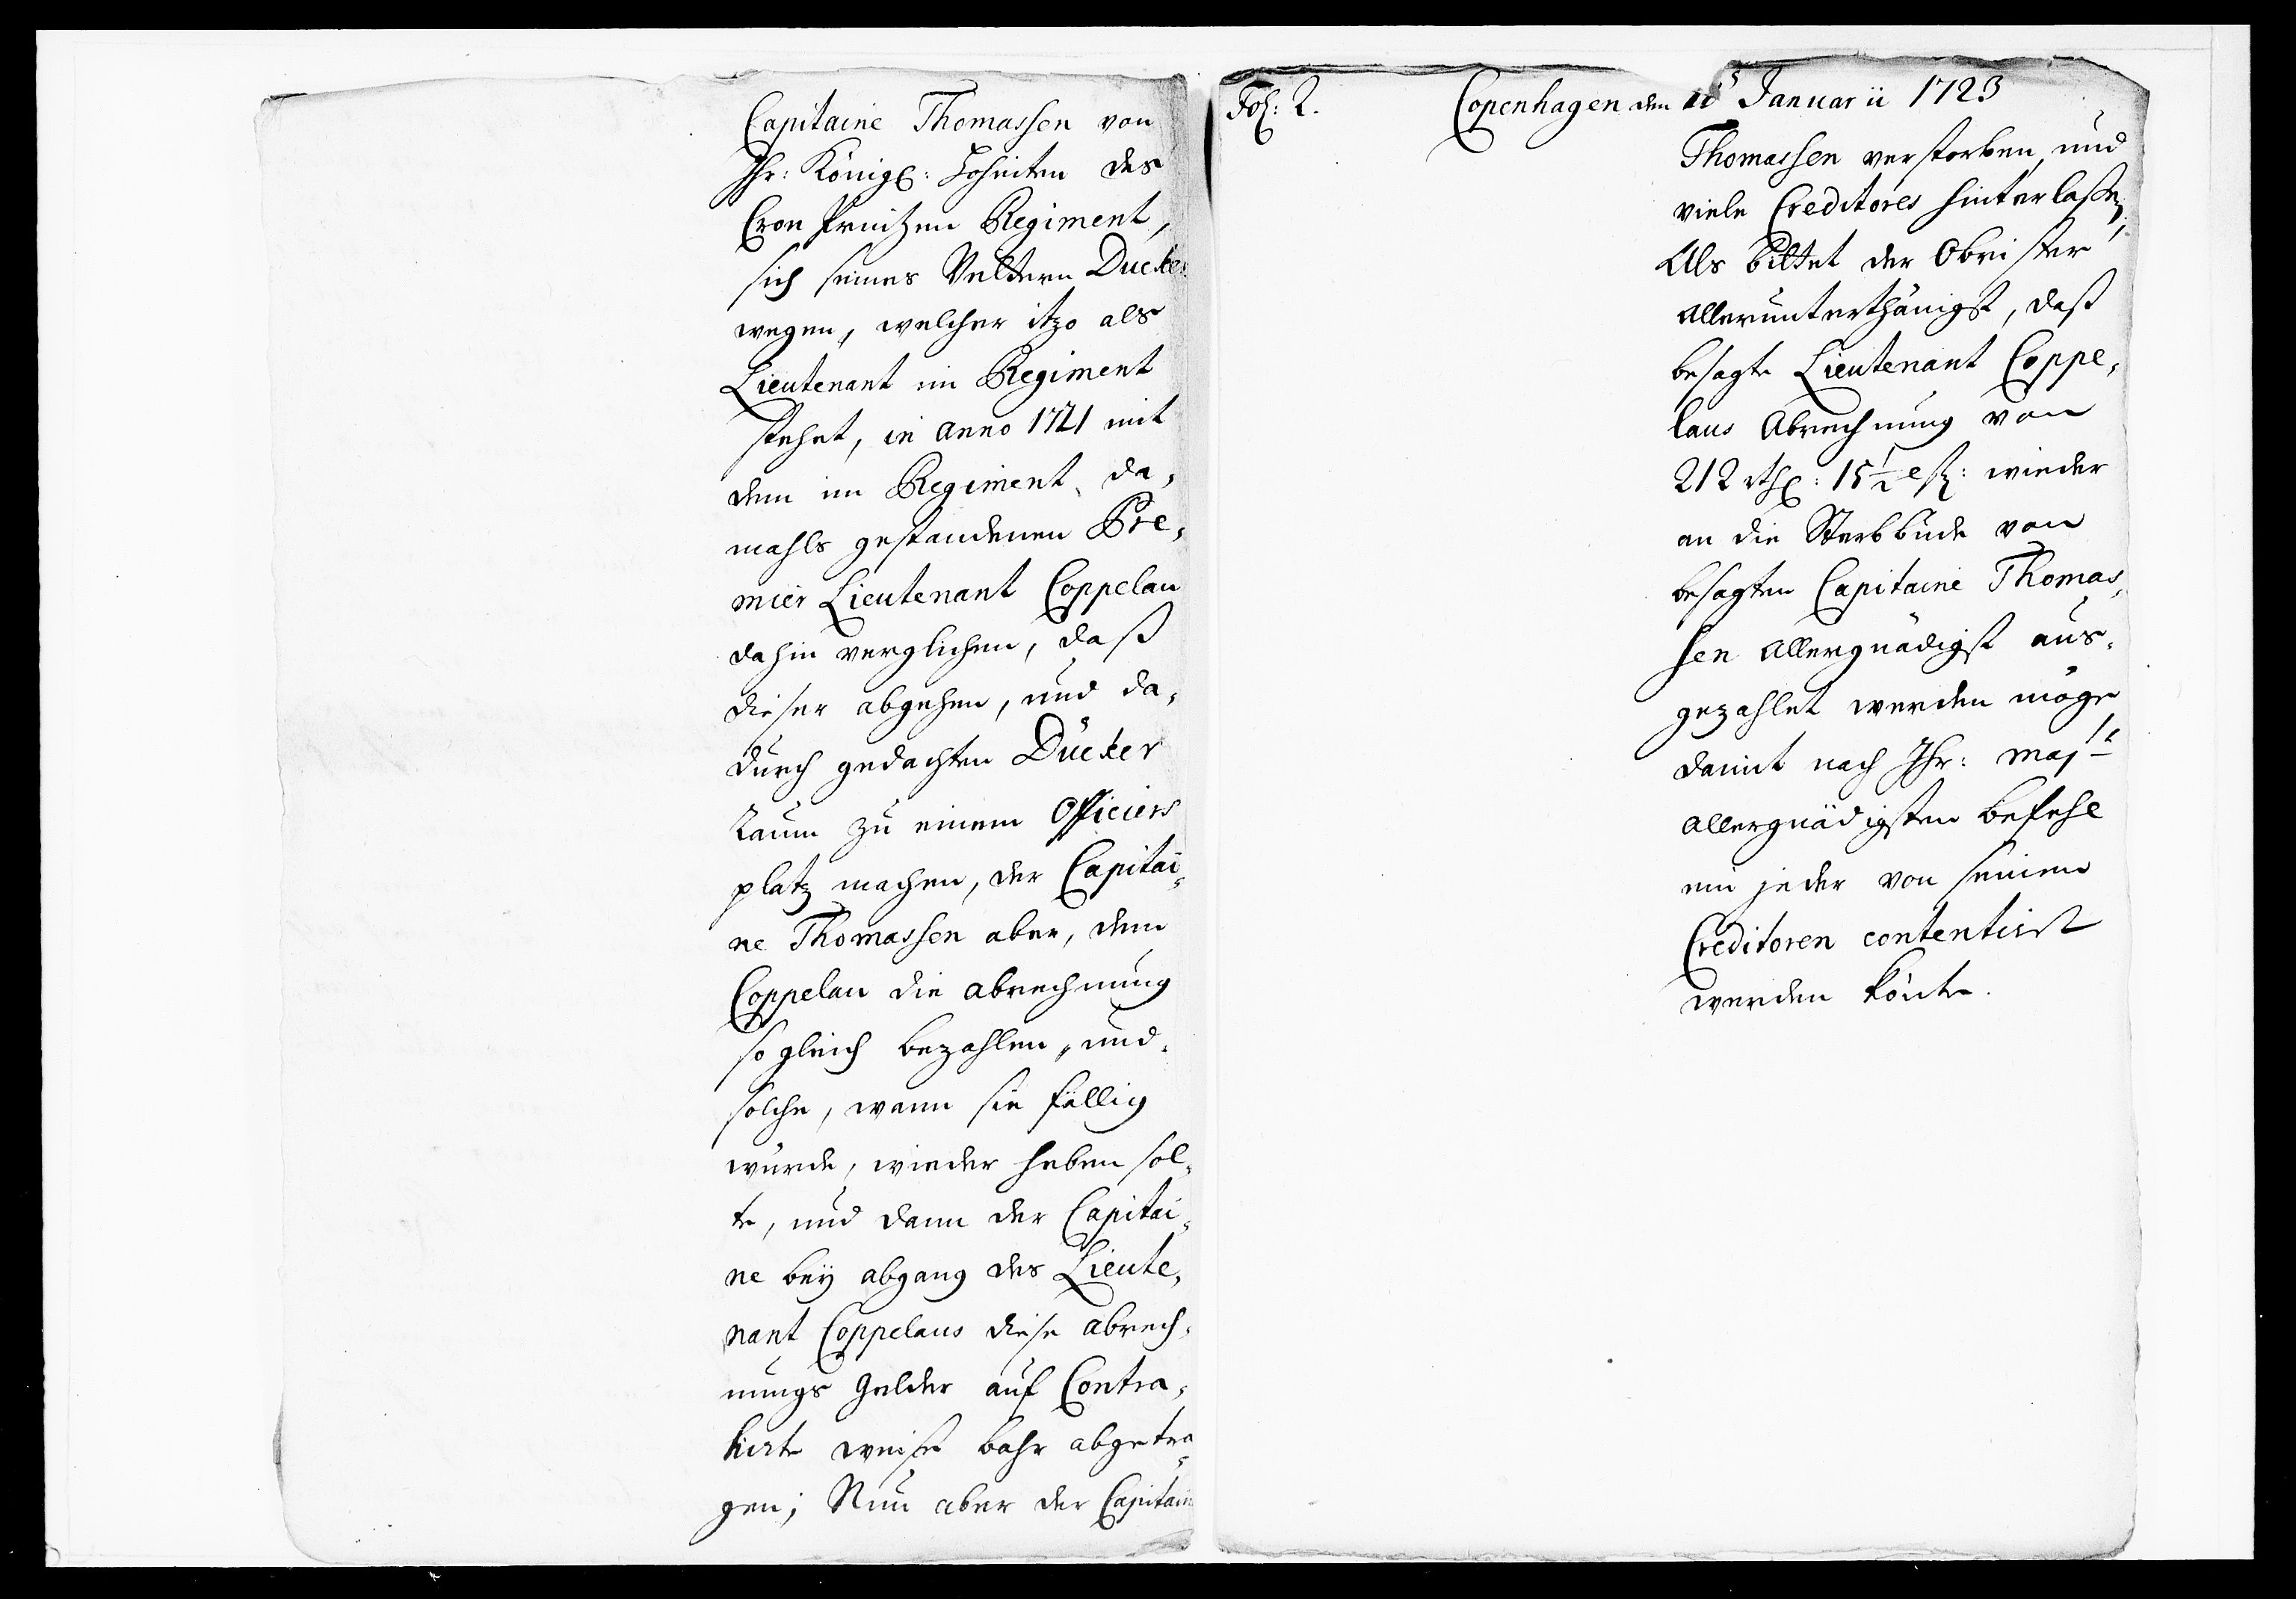 Capitaine Thomassen von
Ihr: Königl: Hoheiten des
Cron Printzen Regiment,
sich seines Vettern Ducker
wegen, welcher itzo als
Lieutenant im Regiment
stehet, in anno 1721 mit
dem im Regiment da-
mahls gestandenen Pre-
mier Lieutenant Coppelau
dahin verglichen, daß
dieser abgehen, und da-
durch gedachten Dücker
Raum zu einem Officiers
platz machen, der Capitai-
ne Thomassen aber, dem
Coppelau die abrechnung
so gleich bezahlen, und
solche, wann sie fällig
würde, wieder heben sol-
te, und dann der Capitai-
ne bey abgang des Lieute-
nant Coppelaus diese abrech-
nungs Gelder auf Contra-
hirte weise bahr abgetra-
gen; Nun aber der Capitain
Fol: 2. Copenhagen den Januarii 1723
Thomassen verstorben, und
viele Creditores hinterlaßen,
Als bittet der Obrister
allerunterthänigst, daß
besagte Lieutenant Coppe-
laus Abrechnung von
212 rthl: 15½ ß: wieder
an die Sterbbude von
besagten Capitaine Thomas-
sen allergnädigst aus-
gezahlet werden möge
damit nach Ihr: Majtt
allergnädigsten befehl
ein jeder von seinen
Creditoren contentirt
werden könte.